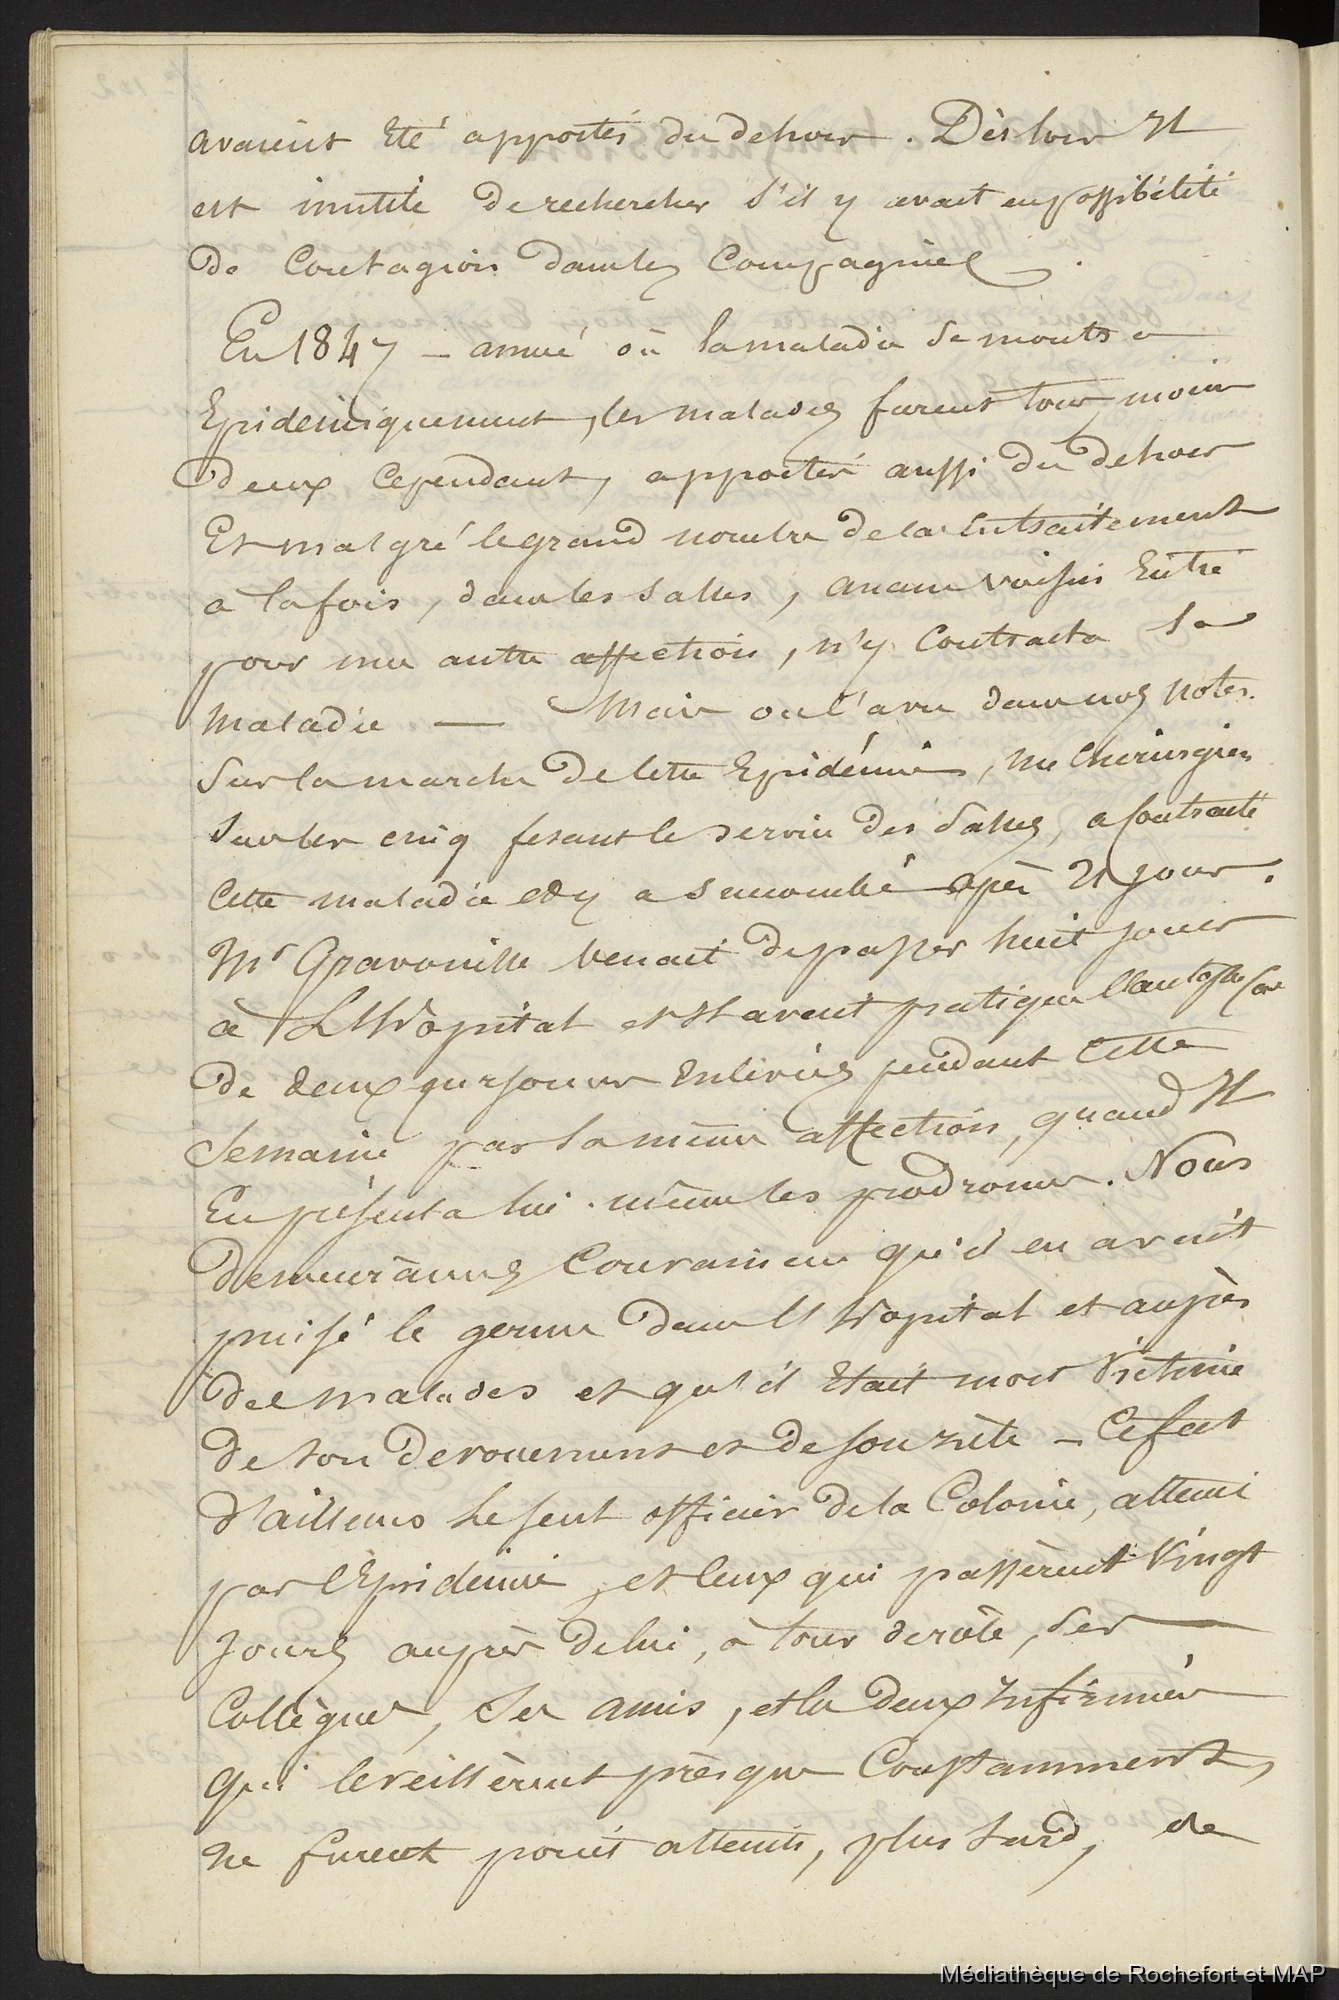 avaient Eté apportés du dehors. Dès lors Il
est inutile de rechercher s'il y avait eu possibilité
de Contagion dans les Compagnies.
En 1847 - année où la maladie se montra
Epidémiquement, les malades furent tous, moins
deux Cependant, apportés aussi du dehors
Et malgré le grand nombre de cas En traitement
a la fois, dans les salles, aucun voisin Entré
pour une autre affection, n'y Contracta la
maladie — Mais on l'a vu dans nos notes
Sur la marche de cette Epidémie, un Chirurgien
Sur les cinq fesant le service des Salles, a Contracté
Cette maladie et y a succombé après 21 jours.
Mr Gravouille venait de passer huit jours
à L'Hopital et Il avait pratiqué l'autopsie
De deux personnes Enlevées pendant Cette
Semaine par la même affection, quand Il
En présenta lui-même les prodromes. Nous
Demeurâmes Convaincus qu'il en avait
puisé le germe dans l'Hopital et auprès
des malades et qu'il Etait mort Victime
De son dévouement et de son zèle - Ce fut
D'ailleurs le seul officier de la Colonie, atteint
par l'Epidémie, et Ceux qui passèrent Vingt
Jours auprès de lui, à tour de rôle, Ses
Collègues, Ses amis, et les deux Infirmiers
Qui le veillèrent prèsque Constamment,
ne furent point atteints, plus tard, de
Médiathèque de Rochefort et MAP